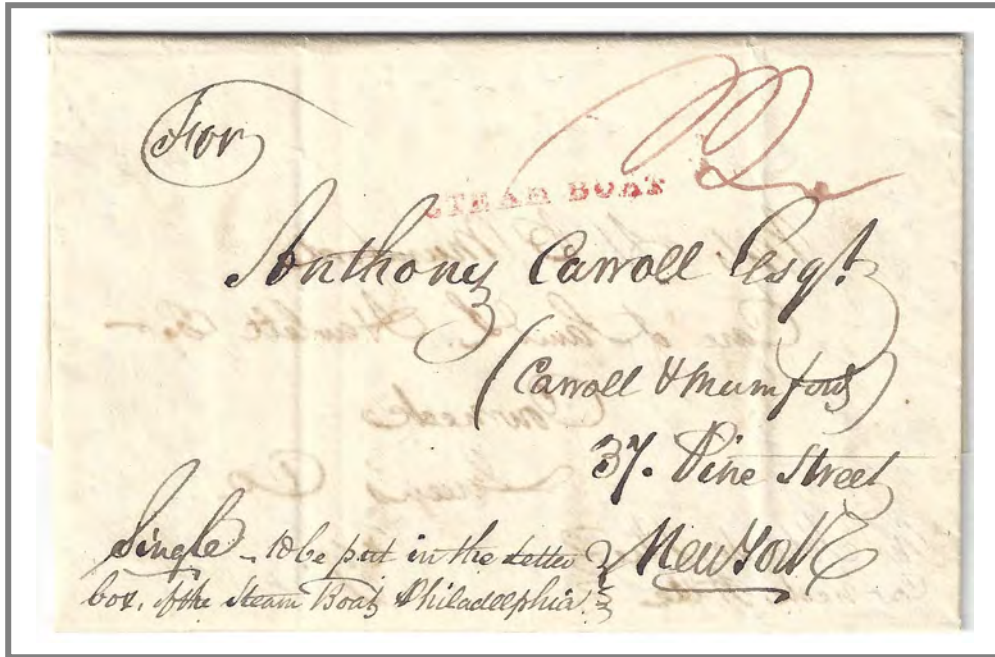 For
STEAM BOAT
Anthony Carroll Esqr.
(Carroll & Mumford)
37. Pine Street
New York
Single - to be put in the Letter
box, of the Steam Boat Philadelphia.